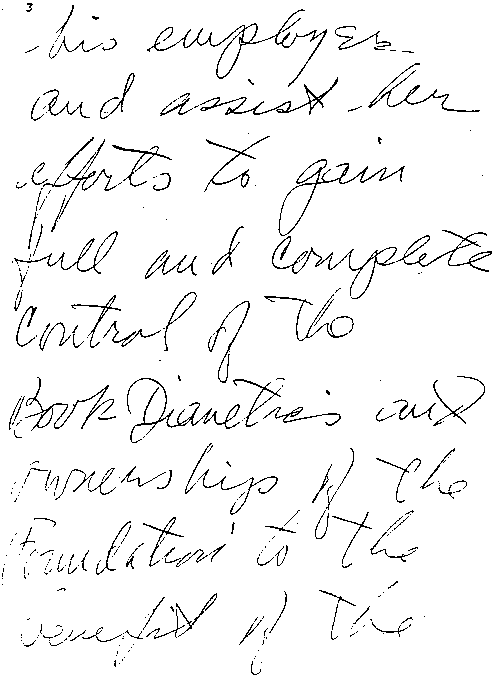 3
his employer
and assist her
efforts to gain
full and complete
control of the
Book Dianetics and
ownership of the
Foundation to the
benefit of the